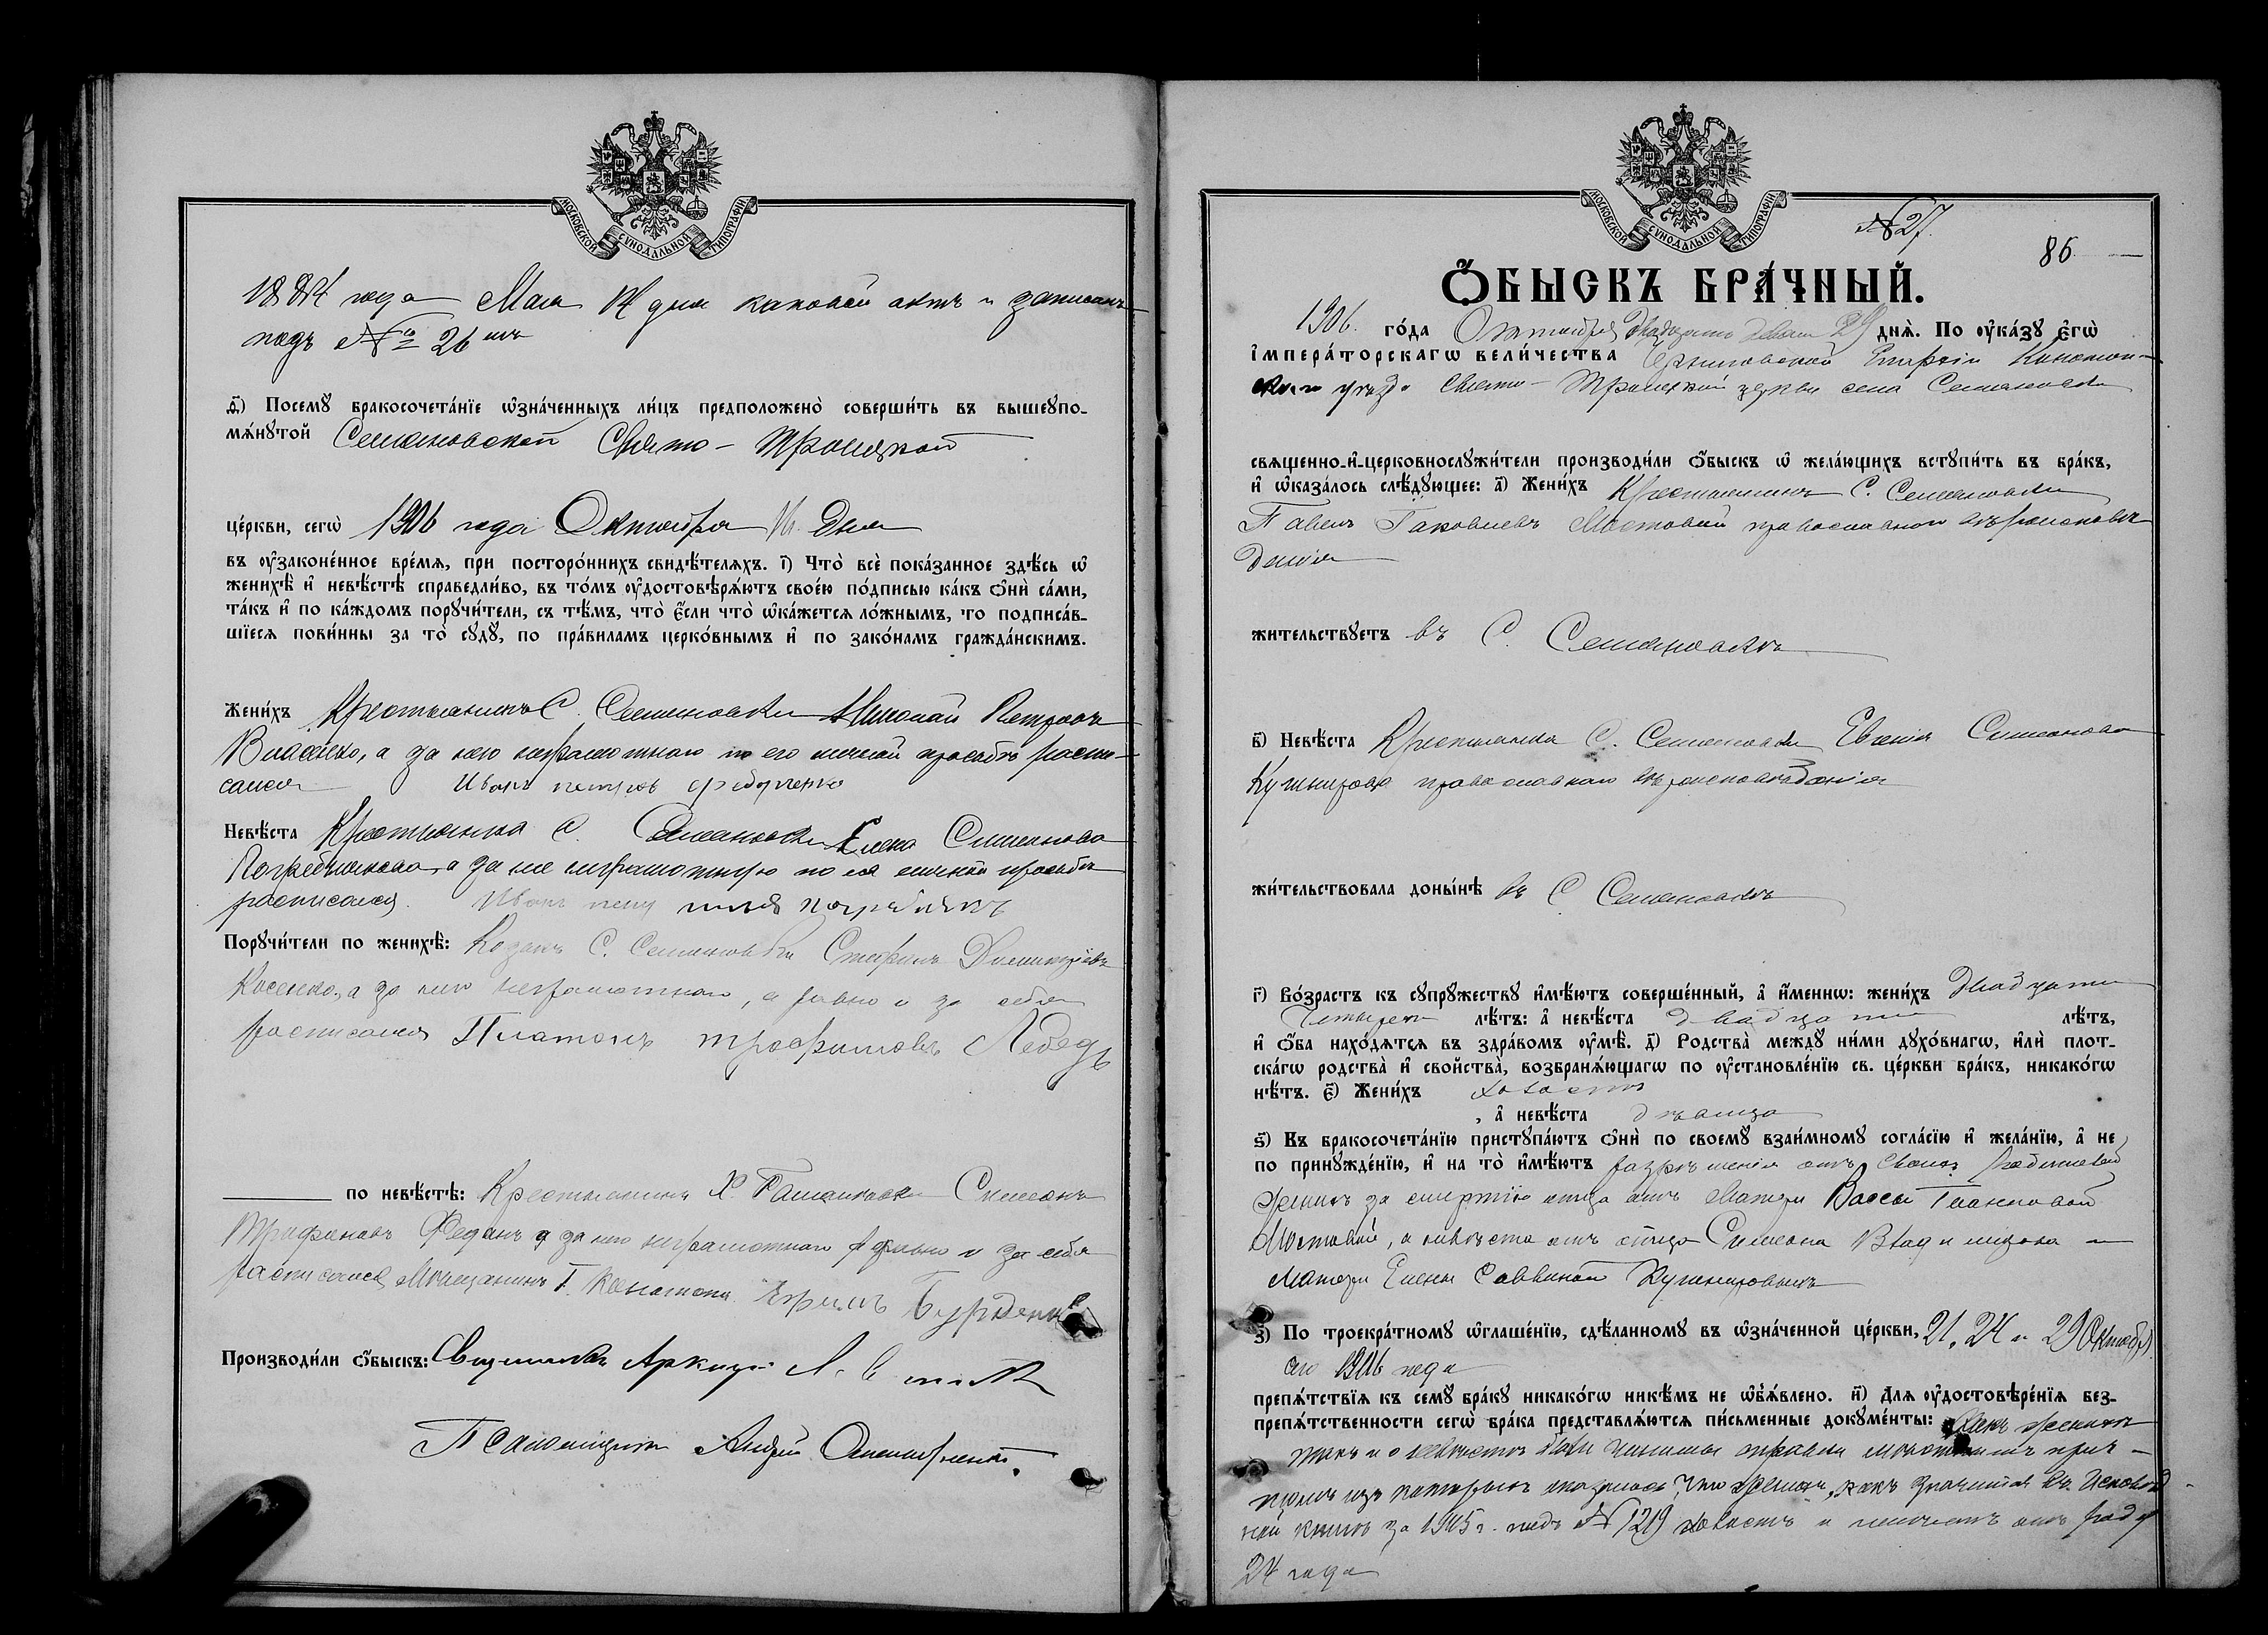 МОСКОВСКОЙ СУНОДАЛЬНОЙ ТИПОГРАФІИ
1884 года Мая 14 дня каковой актъ и записанъ
подъ № 26 мъ
Ѳ҃) Посемꙋ̀ бракосочета́нїе ѡ҆зна́ченныхъ ли́цъ предположено̀ соверши́ть въ вышеꙋпо-
мѧ́нꙋтой Семяновской Свято-Троицкой
це́ркви, сегѡ̀ 1906 года Октября дня
въ ᲂу҆зако́не́нное вре́мѧ, при посторо́ннихъ свидѣ́телѧхъ. І҃) Что̀ всѐ пока́занное здѣ́сь ѡ҆
женихѣ̀ и҆ невѣ́стѣ справедли́во, въ то́мъ ᲂу҆достовѣрѧ́ютъ свое́ю по́дписью ка́къ ѻ҆нѝ са́ми,
та́къ и҆ по ка́ждомъ порꙋчи́тели, съ тѣ́мъ, что̀ є҆́сли что̀ ѡ҆ка́жетсѧ ло́жнымъ, то подписа́в-
шїесѧ пови́нны за то̀ сꙋдꙋ̀, по пра́виламъ церко́внымъ и҆ по зако́намъ гражда́нскимъ.
Жени́хъ Крестьянинъ С. Семяновки Николай Петровъ
Власенко, а за него неграмотнаго по его личной просьбѣ распи-
сался Иванъ петровъ федорченко
Невѣ́ста Крестьянка С. Семяновки Елена Симеонова
а за нее неграмотную по ея личной просьбѣ
росписался Иванъ
Порꙋчи́тели по женихѣ̀: Козакъ С. Семяновки Стефанъ
Косенко, а за него неграмотнаго, а равно и за себя
расписался Платонъ трофимовъ Лебедь
по невѣ́стѣ: Крестьянинъ Х. Симеонъ
Трифоновъ Феданъ а за него неграмотнаго а равно и за себя
расписался Мѣщанинъ Г. Конотопа Ефимъ
Производи́ли ѻ҆́быскъ: Священникъ Аркадій
Псаломщикъ Андрей
МОСКОВСКОЙ СУНОДАЛЬНОЙ ТИПОГРАФІИ
№ 27.
86
Ѻ҆́БЫСКЪ БРА́ЧНЫЙ.
1906. го́да Октября двадцать девять 29 днѧ̀. По ᲂу҆ка́зꙋ Є҆гѡ̀
І҆мпера́торскагѡ вели́чества Черниговской Епархіи Конотоп-
скаго уѣзда Свято-Троицкой церкви села Семяновки
свѧщенно-и҆-церковнослꙋжи́тели производи́ли ѻ҆́быскъ ѡ҆ жела́ющихъ встꙋпи́ть въ бра́къ,
и҆ ѡ҆каза́лось слѣ́дꙋющее: а҃) Жени́хъ Крестьянинъ С. Семяновки
Павелъ Іаковлевъ Мостовый православнаго вѣроисповѣ
данія
жи́тельствꙋетъ въ С. Семяновкѣ
в҃) Невѣ́ста Крестьянка С. Семяновки Евгенія Симеонова
Кушнирова православнаго вѣроисповѣданія
жи́тельствовала доны́нѣ въ С. Семяновкѣ
г҃) Во́зрастъ къ сꙋпрꙋ́жествꙋ и҆мѣ́ютъ соверше́нный, а҆ и҆́меннѡ: жени́хъ двадцати
четырехъ лѣ́тъ: а҆ невѣ́ста двадцати лѣ́тъ,
и҆ ѻ҆́ба нахо́дѧтсѧ въ здра́вомъ ᲂу҆мѣ̀. д҃) Родства̀ междꙋ ни́ми дꙋхо́внагѡ, и҆лѝ плот-
ска́гѡ родства̀ и҆ сво́йства̀, возбранѧ́ющагѡ по ᲂу҆становле́нїю св. це́ркви бра́къ, никако́гѡ
нѣ́тъ. є҃) Жени́хъ холостъ
, а҆ невѣ́ста дѣвица
ѕ҃) Къ бракосочета́нїю пристꙋпа́ютъ ѻ҆нѝ по своемꙋ̀ взаи́мномꙋ согла́сїю и҆ жела́нїю, а҆ не
по принꙋжде́нїю, и҆ на то̀ и҆мѣ́ютъ разрѣшенія отъ своихъ родителей
женихъ за смертію отца отъ матери Вассы Іоанновой
Мостовой, а невѣста отъ отца Симеона Владимірова и
матери Елены Саввиной Кушнировыхъ
з҃) По троекра́тномꙋ ѡ҆глаше́нїю, сдѣ́ланномꙋ въ ѡ҆зна́ченной це́ркви, 21, 24 и 29 Октября
сего 1906 года
препѧ́тствїѧ къ семꙋ̀ бра́кꙋ никако́гѡ никѣ́мъ не ѡ҆б̾ѧ́влено. и҃) Длѧ ᲂу҆достовѣре́нїѧ без-
препѧ́тственности сегѡ̀ бра́ка представлѧ́ютсѧ пи́сьменные докꙋме́нты: женихѣ
такъ и о невѣстѣ были справки мѣстнымъ прич-
томъ изъ которыхъ оказалось, что женихъ, какъ значится въ исповѣд-
ной книгѣ за 1905 г. подъ № 129 холостъ и имѣетъ отъ роду
24 года